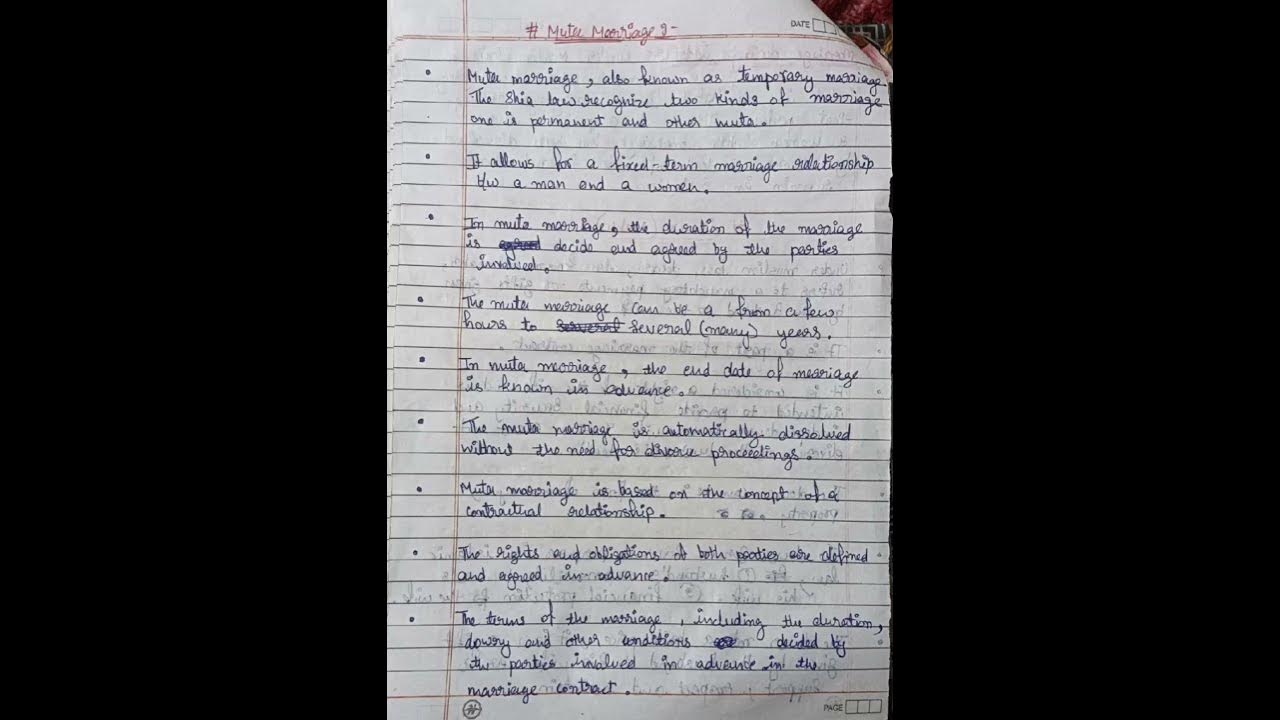 DATE
# Muta Marriage :-
• Muta marriage, also known as temporary marriage
The Shia law recognize two kinds of marriage
one is permanent and other muta.
• It allows for a fixed-term marriage relationship
b/w a man and a women.
• In muta marriage, the duration of the marriage
is decide and agreed by the parties
involved.
• The muta marriage can be a from a few
hours to several (many) years.
• In muta marriage, the end date of marriage
is known in advance.
• The muta marriage is automatically dissolved
without the need for divorce proceedings.
• Muta marriage is based on the concept of a
contractual relationship.
• The rights and obligations of both parties are defined
and agreed in advance.
• The terms of the marriage, including the duration,
dowry and other conditions decided by
the parties involved in advance in the
marriage contract.
PAGE